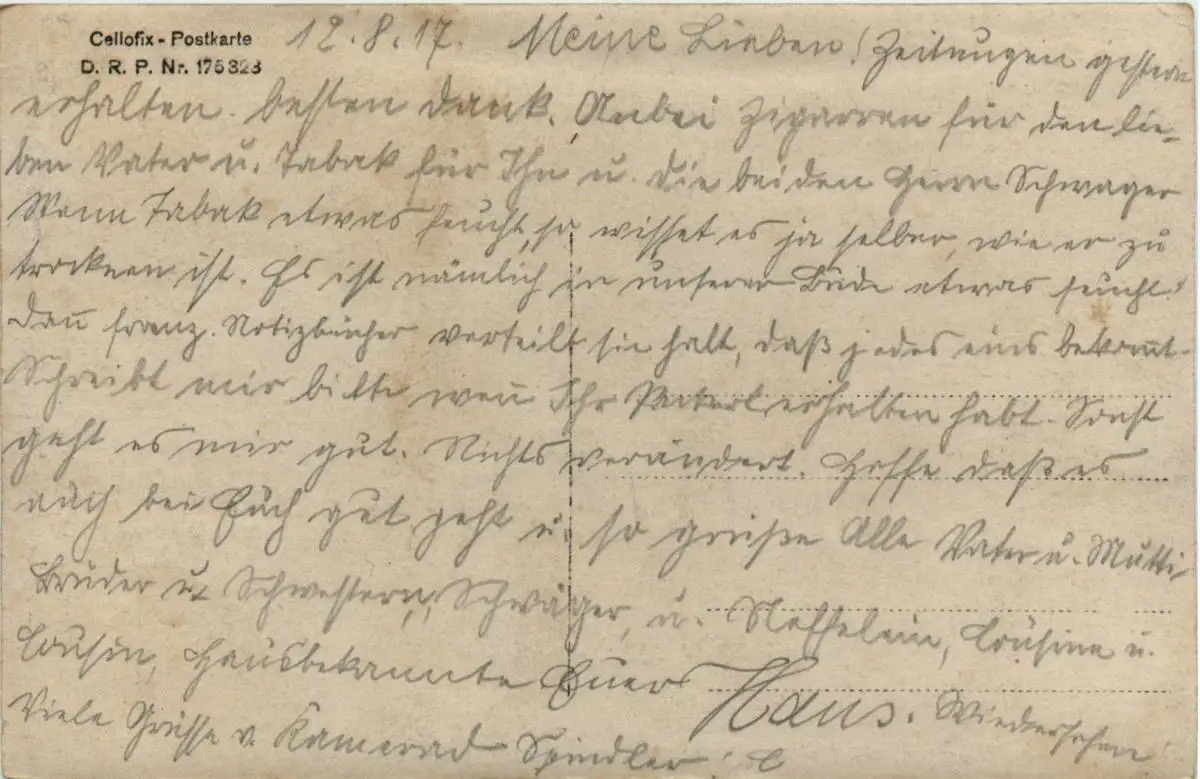 Cellofix-Postkarte
D. R. P. Nr. 175323
12.8.17. Meine Lieben! Zeitungen gestern
erhalten. besten Dank. Anbei Zigarren für den lie-
ben Vater u. Tabak für Ihn u. die beiden Herrn Schwager
Wenn Tabak etwas feucht, so wisset es ja selber, wie er zu
trocknen ist. Es ist nämlich in unserer Bude etwas feucht!
Dan̄ franz. Notizbücher verteilt sie halt, daß jedes eins bekom̄t.
Schreibt mir bitte wen̄ Ihr Packerl erhalten habt. Sonst
geht es mir gut. Nichts verändert. Hoffe daß es
auch bei Euch gut geht u. so grüße Alle Vater u. Mutti
Brüder u. Schwestern, Schwäger, u. Neffelein, Cousine u.
Cousin, Hausbekannte Euer Hans. Wiedersehen!
Viele Grüsse v. Kamerad Spindler!